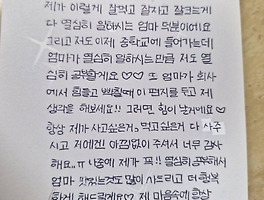 제가 이렇게 잘먹고 잘자고 잘크는게
다 열심히 일하시는 엄마 덕분이에요
그리고 저도 이제 중학교에 들어가는데
엄마가 열심히 일하시는만큼 저도 열
심히 공부할게요♡♡ 또 엄마가 회사
에서 힘들고 빡칠때 이 편지를 두고 제
생각을 해보세요!! 그러면 힘이 날거에요♡
항상 제가 사고싶은거, 먹고싶은거 다 사주
시고 저에겐 아낌없이 주셔서 너무 감사
해요..ㅠ 나중에 제가 꼭!! 열심히 공부해서
엄마 맛있는것도 많이 사드리고 더 행복
하게 해드릴게요♡ 제 마음속에 항상